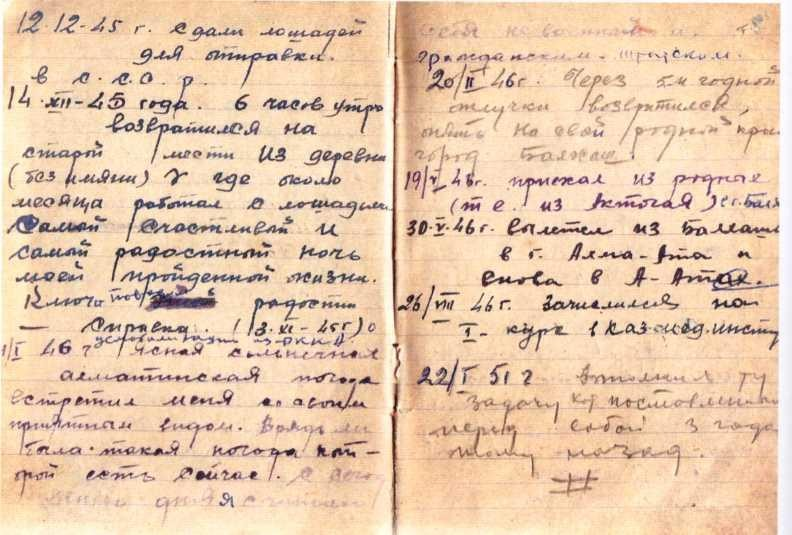 12.12-45 г. сдали лошадей
для отправки.
в с.с.с.р.
14.XII-45 года. 6 часов утра
возвратился на
старой мести из деревни
(без имяни) у где около
месяца работал с лошадьми
Самый счастливый и
самый радостный ночь
моей пройденной жизни.
радости
Справка. (13.XI-45г)
1/I 46 г ясная солнечная
алматинская погода
встретил меня со своим
приятным видом. Врядь ли
была такая погода кот-
рой есть сейчас. с сегод
дня я считаю
себя не военным и.
гражданским.
20/II 46г. Через 5-и годной
отлучки возвратился,
опять на свой родной край
город Балхаш.
19/V 46г. приехал из родные
(т.е. из Актогая) с г. Балх
30.V.46г. вылетел из Балхаша
в г. Алма-Ата и
снова в А-Атах.
26/VIII 46г. Зачислился на
I- курс в Каз.мед.инсту
22/I 51 г выполнил ту
задачу кот постовленный
перед собой 3 года
тому назад.